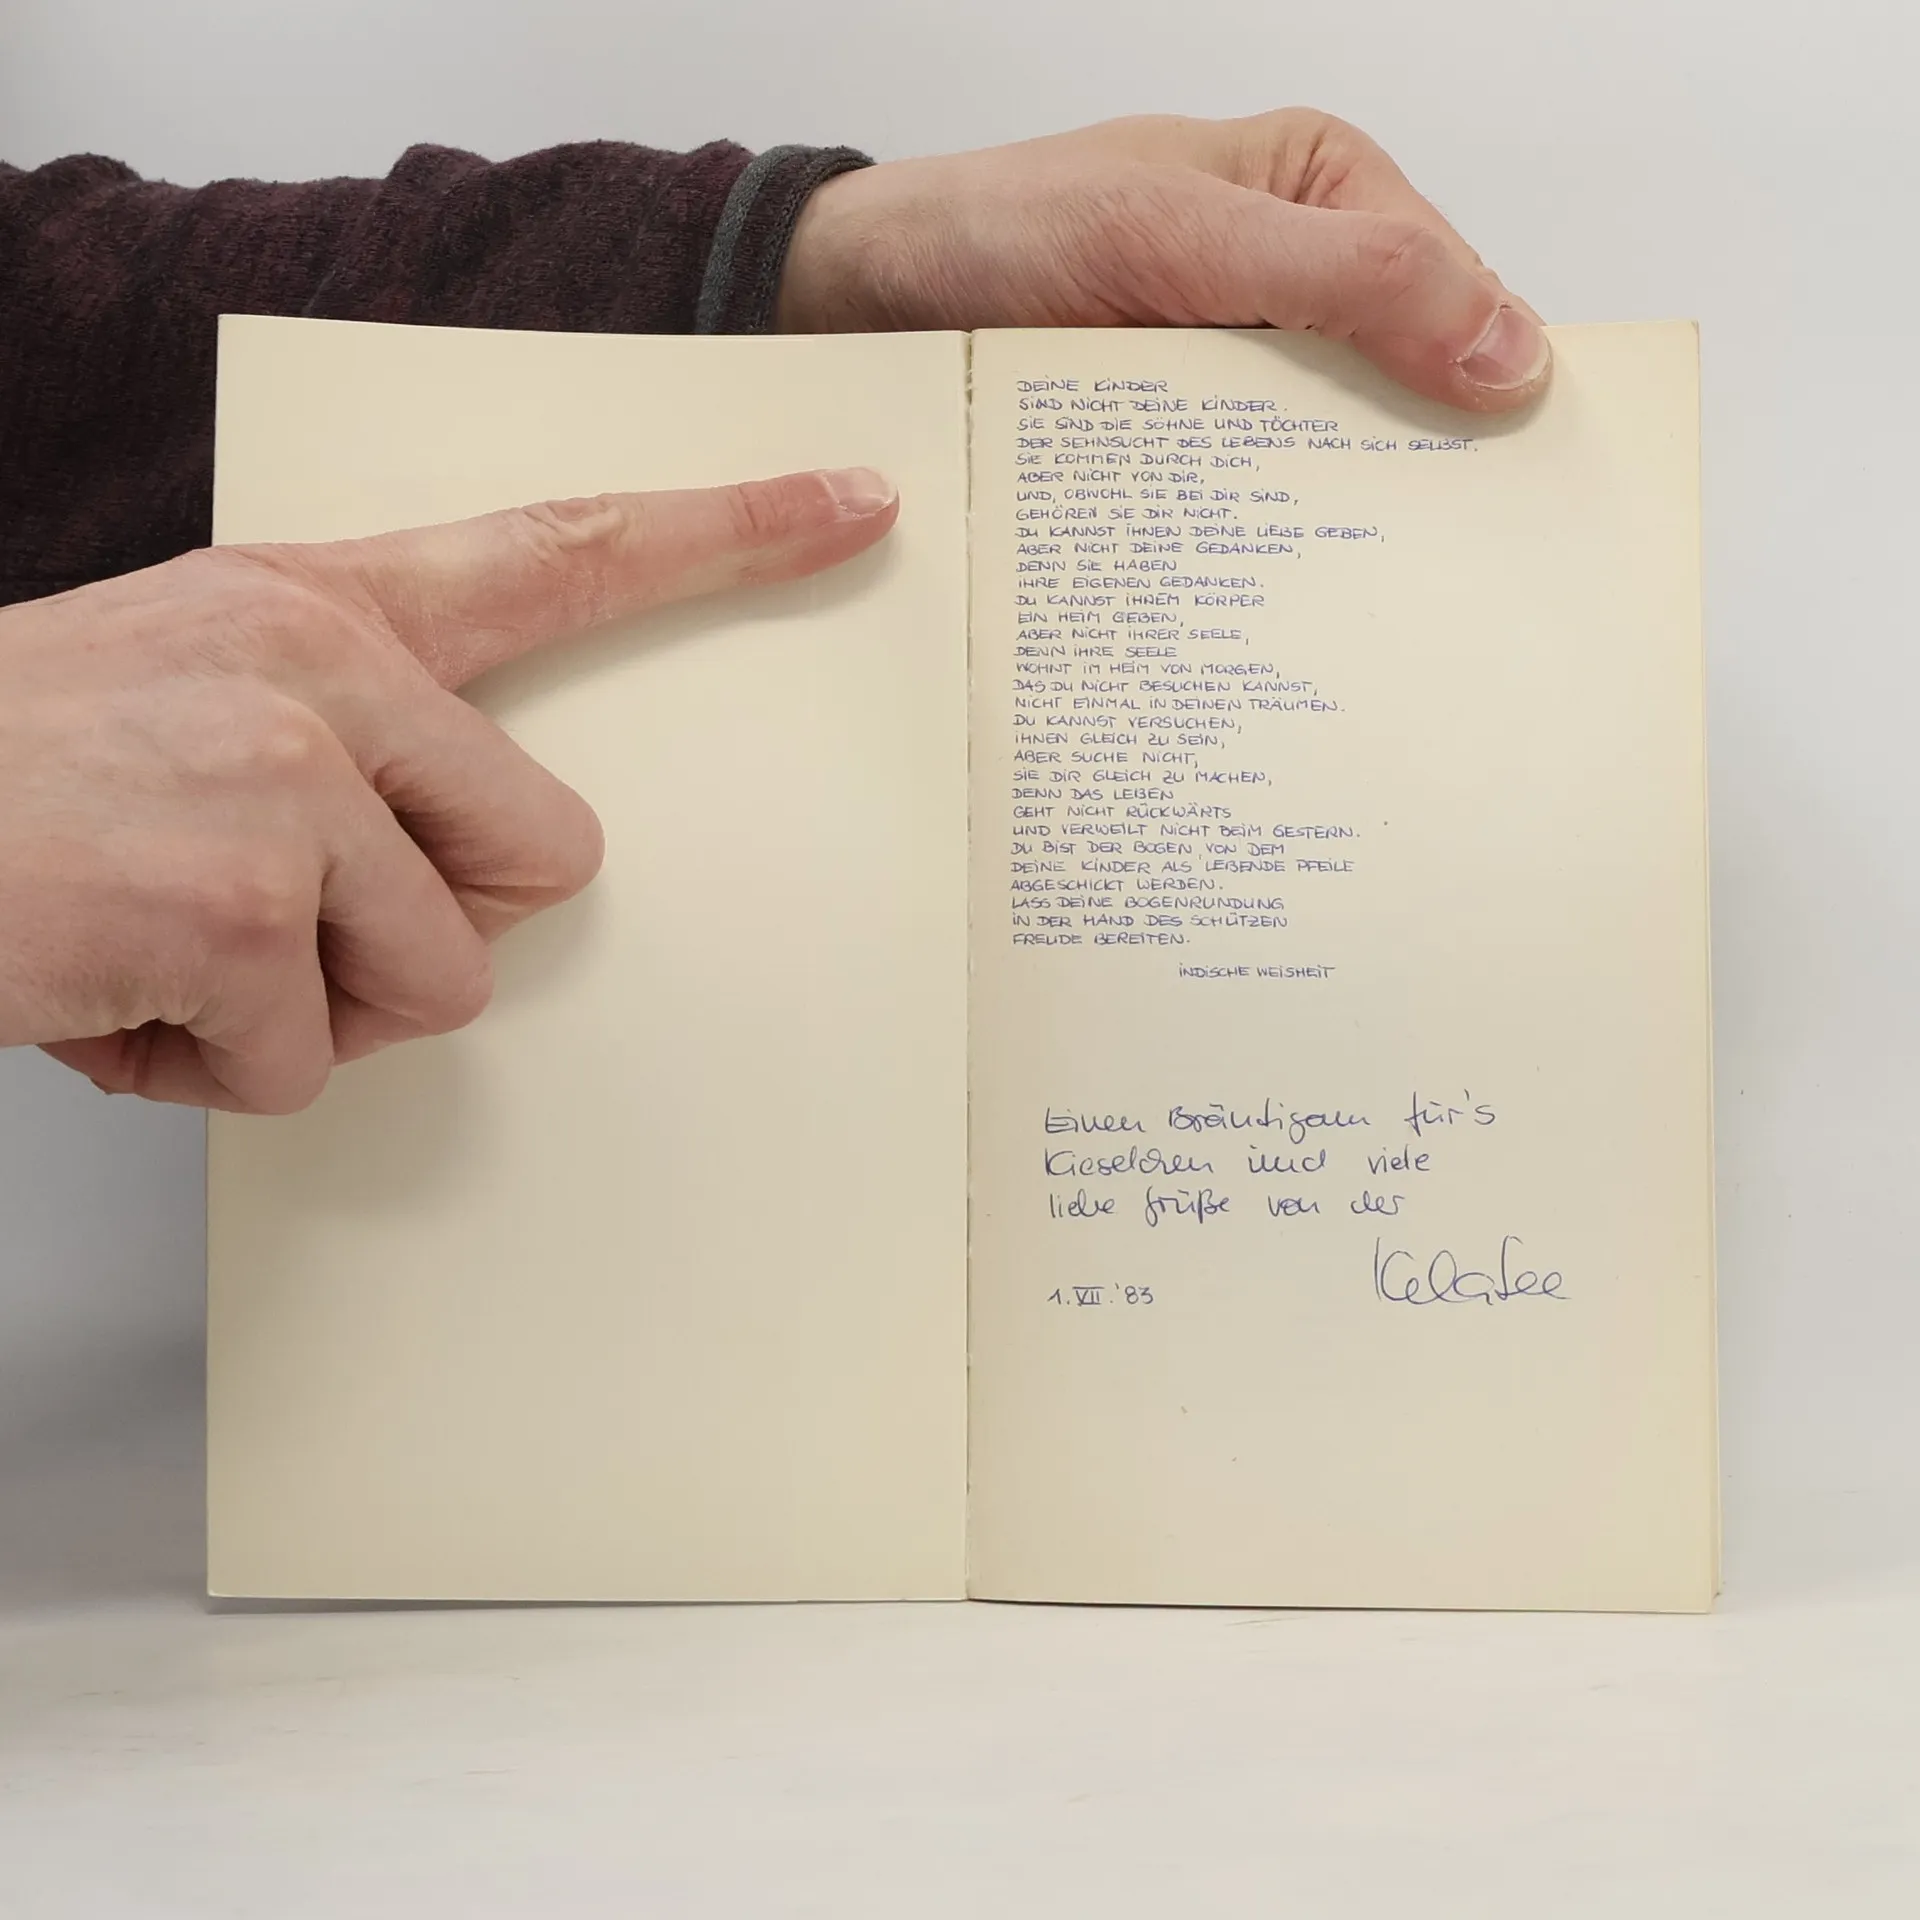 DEINE KINDER
SIND NICHT DEINE KINDER.
SIE SIND DIE SÖHNE UND TÖCHTER
DER SEHNSUCHT DES LEBENS NACH SICH SELBST.
SIE KOMMEN DURCH DICH,
ABER NICHT VON DIR,
UND, OBWOHL SIE BEI DIR SIND,
GEHÖREN SIE DIR NICHT.
DU KANNST IHNEN DEINE LIEBE GEBEN,
ABER NICHT DEINE GEDANKEN,
DENN SIE HABEN
IHRE EIGENEN GEDANKEN.
DU KANNST IHREM KÖRPER
EIN HEIM GEBEN,
ABER NICHT IHRER SEELE,
DENN IHRE SEELE
WOHNT IM HEIM VON MORGEN,
DAS DU NICHT BESUCHEN KANNST,
NICHT EINMAL IN DEINEN TRÄUMEN.
DU KANNST VERSUCHEN,
IHNEN GLEICH ZU SEIN,
ABER SUCHE NICHT,
SIE DIR GLEICH ZU MACHEN,
DENN DAS LEBEN
GEHT NICHT RÜCKWÄRTS
UND VERWEILT NICHT BEIM GESTERN.
DU BIST DER BOGEN, VON DEM
DEINE KINDER ALS LEBENDE PFEILE
ABGESCHICKT WERDEN.
LASS DEINE BOGENRUNDUNG
IN DER HAND DES SCHÜTZEN
FREUDE BEREITEN.
INDISCHE WEISHEIT
Einen Bräutigam für's
Kieselchen und viele
liebe Grüße von der
1.VII.'83